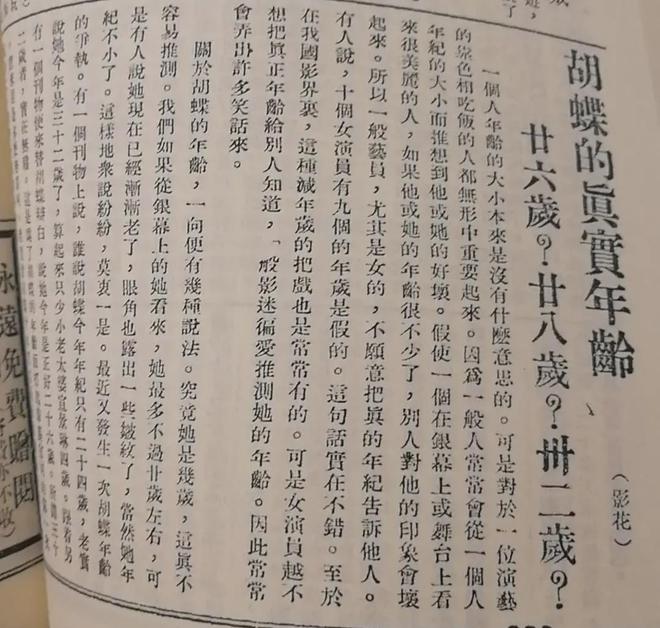 胡蝶的眞實年齡
廿六歲？廿八歲？卅二歲？
（影花）
一個人年齡的大小本來是沒有什麼意思的。可是對於一位演藝
的靠色相吃飯的人都無形中重要起來。因爲一般人常常會從一個人
年紀的大小而推想到他或她的好壞。假使一個在銀幕上或舞台上看
來很美麗的人，如果他或她的年齡很不少了，別人對他的印象會壞
起來。所以一般藝員，尤其是女的，不願意把眞的年紀告訴他人。
有人說，十個女演員有九個的年歲是假的。這句話實在不錯。至於
在我國影界裏，這種減年歲的把戲也是常常有的。可是女演員越不
想把眞正年齡給別人知道，一般影迷徧愛推測她的年齡。因此常常
會弄出許多笑話來。
關於胡蝶的年齡，一向便有幾種說法。究竟她是幾歲，這眞不
容易推測。我們如果從銀幕上的她看來，她最多不過廿歲左右，可
是有人說她現在已經漸漸老了，眼角也露出一些皺紋了，當然她年
紀不小了。這樣地衆說紛紛，莫衷一是。最近又發生一次胡蝶年齡
的爭執。有一個刊物上說，誰說胡蝶今年年紀只有二十四歲，老實
說她今年是三十二歲了，算起來只少小老太婆宣景琳四歲。跟着另
有一個刊物便來替胡蝶辯白，說她今年是正好二十六歲。所謂三十
二歲者，實在無稽。
永遠免費贈閱